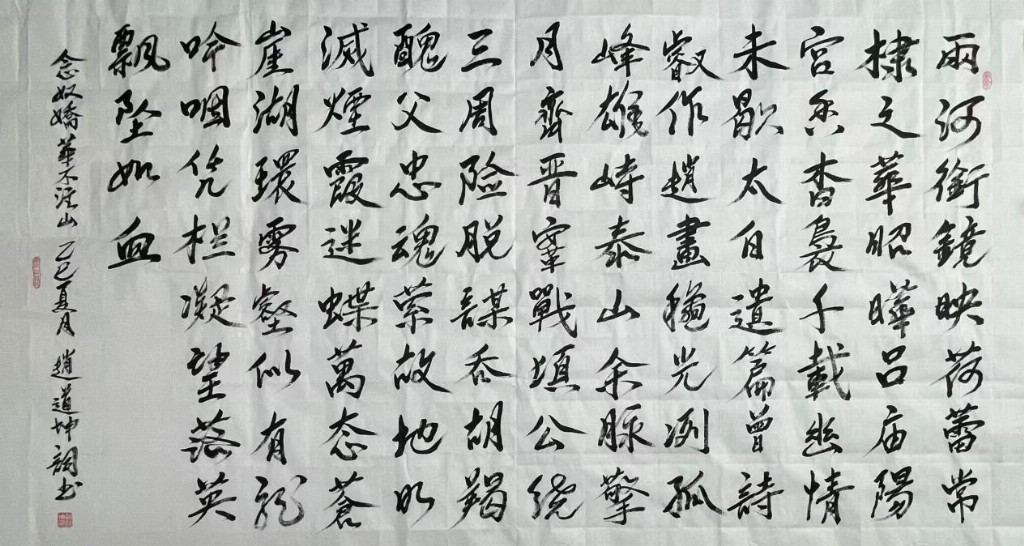 兩河銜鏡映荷蕾常
棣之華昭曄呂庙陽
宮香杳裊千載幽情
未歇太白遺篇曾詩
叡作趙畫穐光冽孤
峰雄峙泰山余脉擎
月齊晋鞌戰頃公绕
三周险脱謀吞胡羯
醜父忠魂萦故地明
滅煙霞迷蝶萬态蒼
崖湖環雾壑似有龍
吟咽凭栏凝望落英
飄坠如血
念奴嬌 華不注山 乙巳夏月 趙道坤詞书